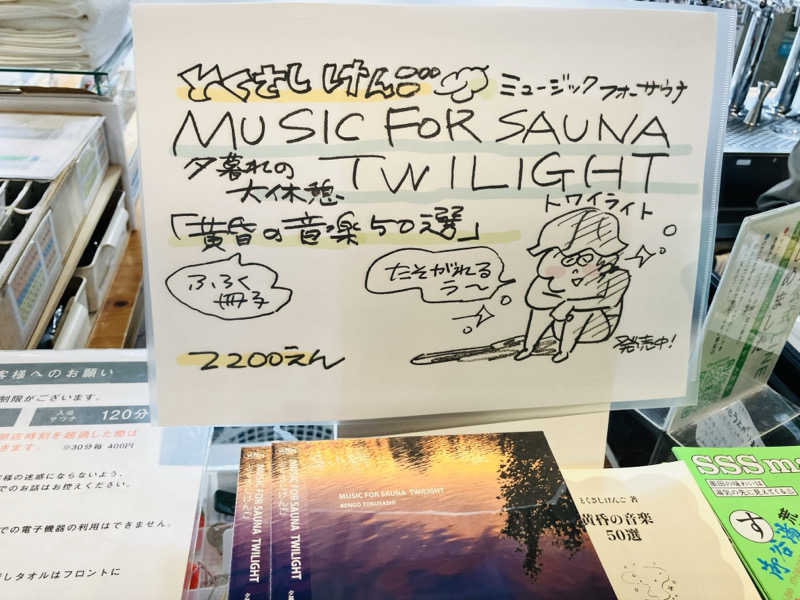 とくさしけんご
ミュージックフォーサウナ
MUSIC FOR SAUNA
夕暮れの
大休憩
TWILIGHT
トワイライト
「黄昏の音楽50選」
ふろく
冊子
たそがれる
ラ〜
2200えん
発売中!
客様へのお願い
制限がございます。
120分
※30分毎 400円
様の迷惑にならないよう、
でのお話はお控えください。
での電子機器の利用はできません。
タオルはフロントに
MUSIC FOR SAUNA TWILIGHT
MUSIC FOR SAUNA TWILIGHT
MUSIC FOR SAUNA TWILIGHT
KENGO TOKUSASHI
とくさしけんご 著
黄昏の音楽
50選
SSS
す